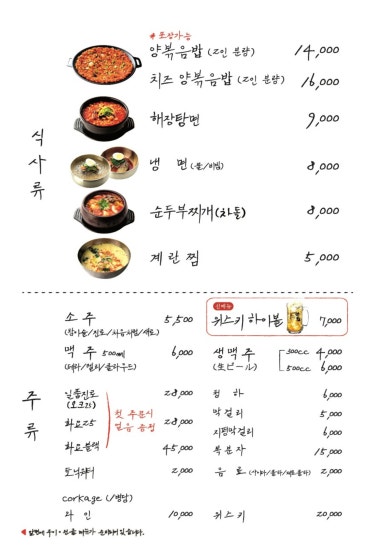 # 포장가능
양볶음밥 (2인 분량) 14,000
치즈 양볶음밥 (2인 분량) 16,000
해장탕면 9,000
냉 면 (물/비빔) 8,000
순두부찌개(차돌) 8,000
계란찜 5,000
식사류
소 주 5,500
(참이슬/진로/처음처럼/새로)
맥 주 500ml 6,000
(테라/켈리/클라우드)
일품진로 28,000
(오크25)
화요25 28,000
화요블랙 45,000
첫 주문시
얼음 증정
토닉워터 2,000
corkage (/병당)
와 인 10,000
주류
신메뉴
위스키 하이볼 7,000
생맥주 300cc 4,000
(生ビール) 500cc 6,000
청 하 6,000
막걸리 5,000
지평막걸리 6,000
복분자 15,000
음 료 2,000
위스키 20,000